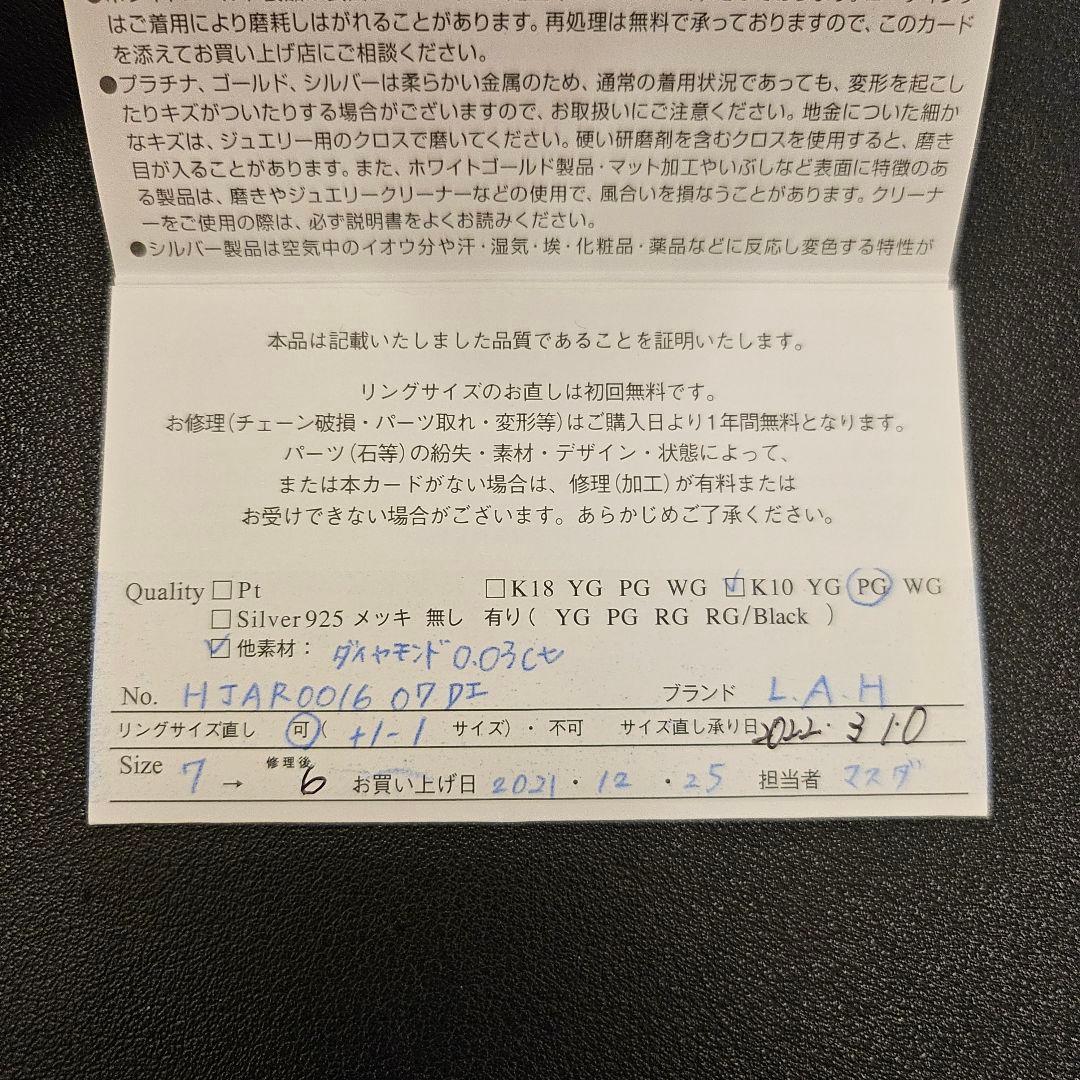 はご着用により磨耗しはがれることがあります。再処理は無料で承っておりますので、このカード
を添えてお買い上げ店にご相談ください。
●プラチナ、ゴールド、シルバーは柔らかい金属のため、通常の着用状況であっても、変形を起こし
たりキズがついたりする場合がございますので、お取扱いにご注意ください。地金についた細か
なキズは、ジュエリー用のクロスで磨いてください。硬い研磨剤を含むクロスを使用すると、磨き
目が入ることがあります。また、ホワイトゴールド製品・マット加工やいぶしなど表面に特徴のあ
る製品は、磨きやジュエリークリーナーなどの使用で、風合いを損なうことがあります。クリーナ
ーをご使用の際は、必ず説明書をよくお読みください。
●シルバー製品は空気中のイオウ分や汗・湿気・埃・化粧品・薬品などに反応し変色する特性が
本品は記載いたしました品質であることを証明いたします。
リングサイズのお直しは初回無料です。
お修理(チェーン破損・パーツ取れ・変形等)はご購入日より1年間無料となります。
パーツ(石等)の紛失・素材・デザイン・状態によって、
または本カードがない場合は、修理(加工)が有料または
お受けできない場合がございます。あらかじめご了承ください。
Quality □Pt □K18 YG PG WG ☑K10 YG PG WG
□Silver925 メッキ 無し 有り( YG PG RG RG/Black )
☑他素材: ダイヤモンド 0.03ct
No. HJAR0016 07DI ブランド L.A.H
リングサイズ直し 可( +1-1 サイズ)・不可 サイズ直し承り日 2022. 3 10
Size 7 → 修理後 6 お買い上げ日 2021・12・25 担当者 マスダ